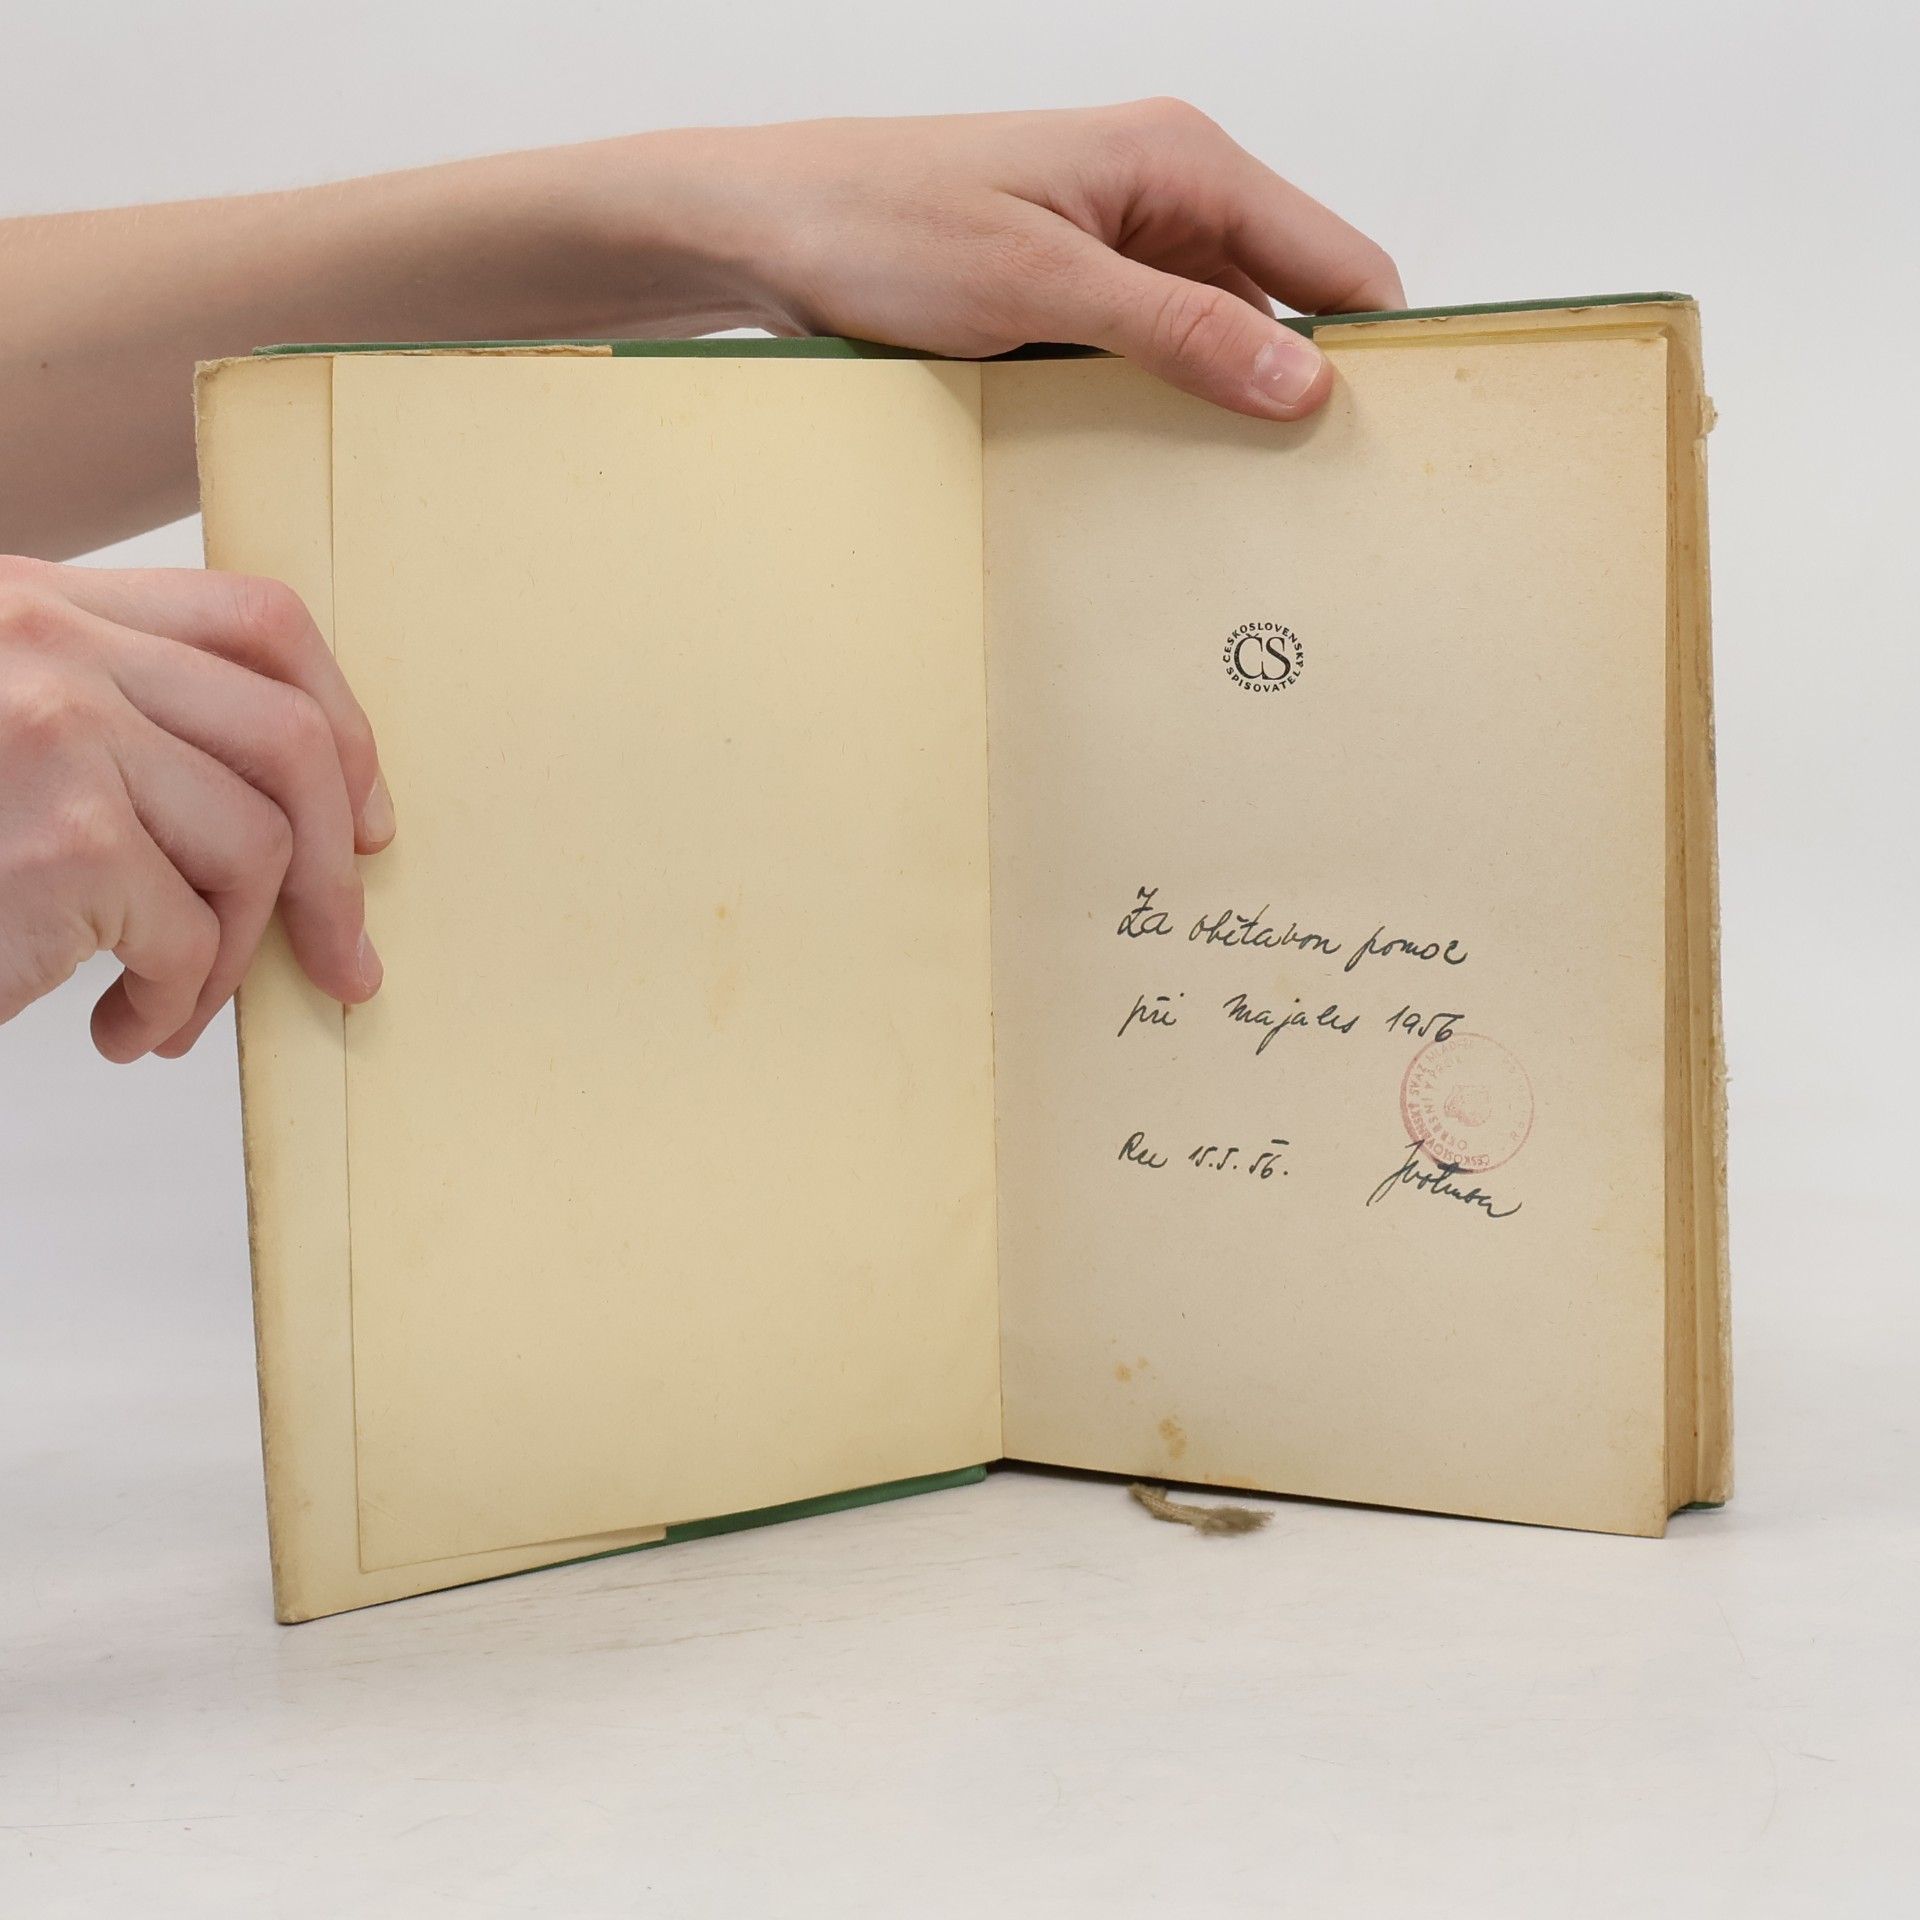 ČESKOSLOVENSKÝ SPISOVATEL
ČS
Za obětavou pomoc
při Majales 1956
ČESKOSLOVENSKÝ SVAZ MLÁDEŽE
OKRESNÍ
15.5.56.